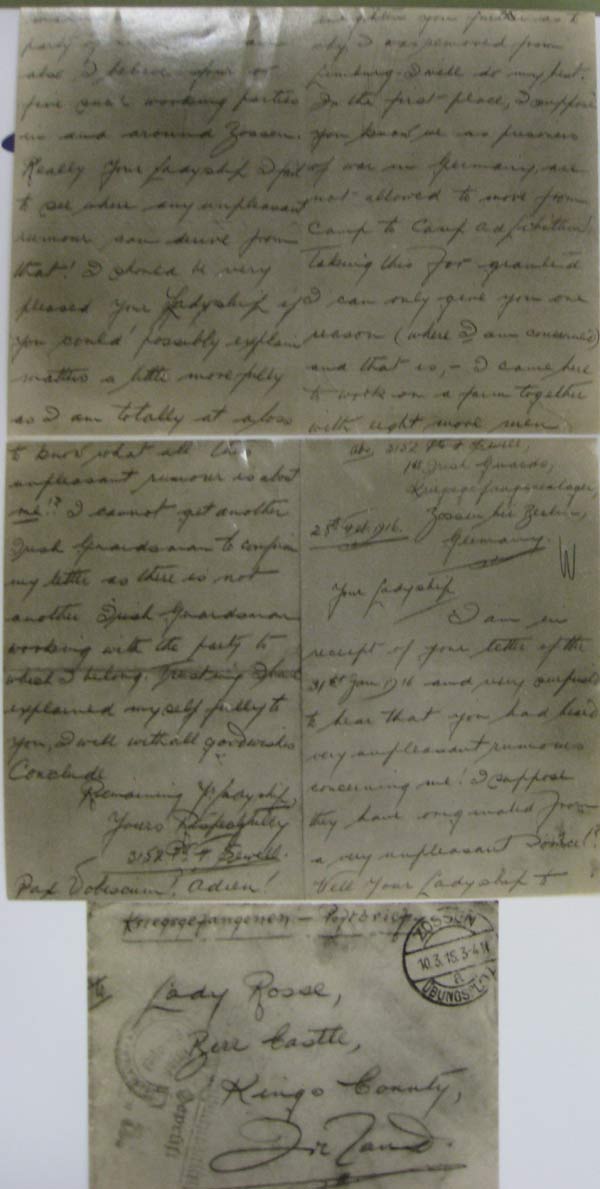 3152 Pte F Sewell,
1st Irish Guards,
Kriegsgefangenenlager,
Zossen bei Berlin,
Germany.
28th Feb. 1916.
Your Ladyship
I am in
receipt of your letter of the
31st Jan 1916 and very surprised
to hear that you had heard
very unpleasant rumours
concerning me! I suppose
they have originated from
a very unpleasant source!?
Well Your Ladyship to
enlighten you further as to
why I was removed from
Limburg. I will do my best.
In the first place, I suppose
you know we as prisoners
of war in Germany, are
not allowed to move from
Camp to Camp ad libitum!
Taking this for granted
I can only give you one
reason (where I am concerned)
and that is, - I came here
to work on a farm together
with eight more men
party of
also I believe four or
five such working parties
in and around Zossen.
Really Your Ladyship I fail
to see where any unpleasant
rumour can derive from
that! I should be very
pleased Your Ladyship if
you could possibly explain
matters a little more fully
as I am totally at a loss
to know what all this
unpleasant rumour is about
me!? I cannot get another
Irish Guardsman to confirm
my letter as there is not
another Irish Guardsman
working with the party to
which I belong. Trusting I have
explained myself fully to
you, I will with all good wishes
Conclude
Remaining Yr Ladyship
Yours Respectfully
3152 Pte F Sewell.
Pax Vobiscum! Adieu!
Kriegsgefangenen - Postbrief
ZOSSEN
10.3.16.3-4N
a
ÜBUNGSPLATZ
To
Lady Rosse,
Birr Castle,
Kings County,
Ireland.
Geprüft